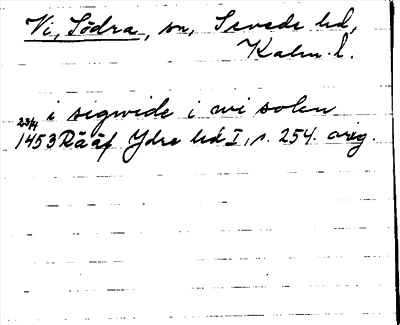 Vi, Södra, sn, Sevede hd,
Kalm. l.
i sigwide i wi solen
23/4 1453 Rääf Ydre hd I, s. 254. orig.